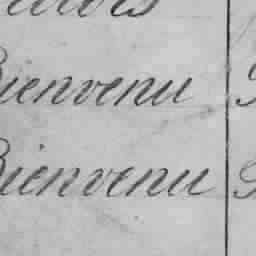 Bienvenu
Bienvenu